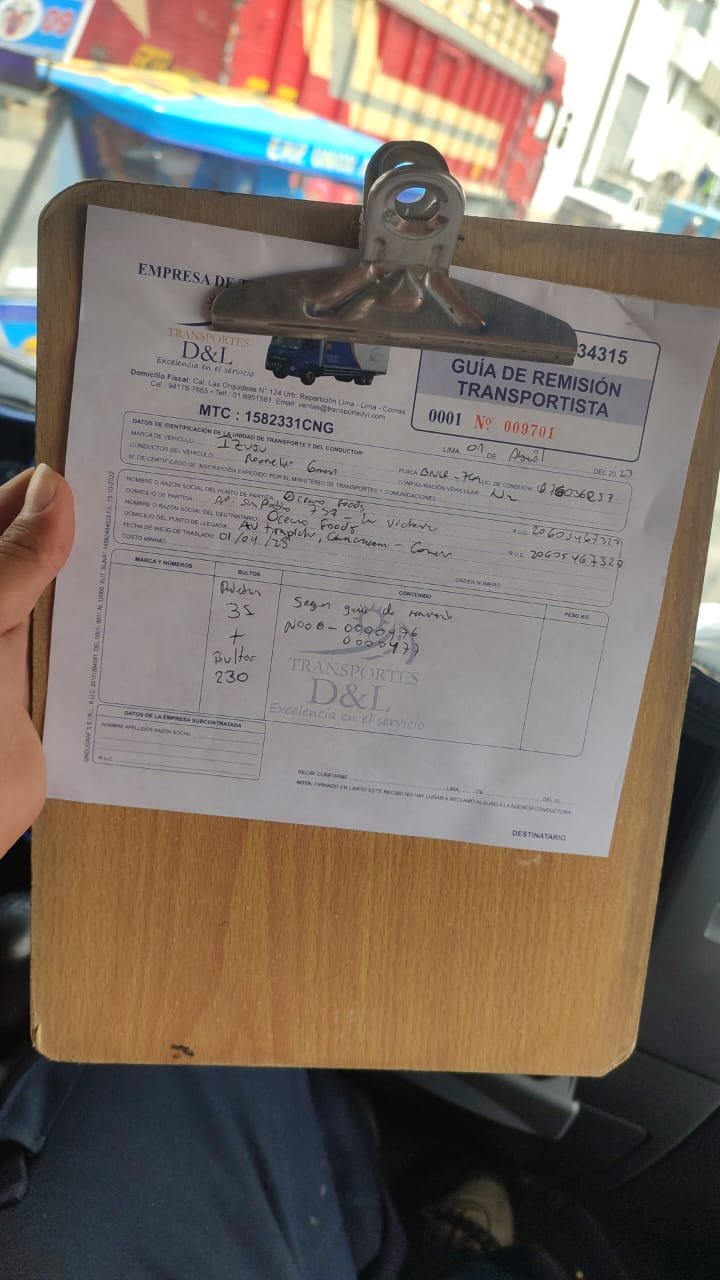 09
EMPRESA DE T
34315
TRANSPORTES
D&L
Excelencia en el servicio
GUÍA DE REMISIÓN
TRANSPORTISTA
0001 Nº 009701
Domicilio Fiscal: Cal. Las Orquideas N° 124 Urb. Repartición Lima - Lima - Comas
Cel : 94178-7665 - Telf : 01 6951581 Email: ventas@transportedyl.com
MTC : 1582331CNG
LIMA, 01 DE Abril DEL 20 23
DATOS DE IDENTIFICACIÓN DE LA UNIDAD DE TRANSPORTE Y DEL CONDUCTOR
MARCA DE VEHÍCULO: IZUSU PLACA LIC. DE CONDUCIR
CONDUCTOR DEL VEHÍCULO: CONFIGURACIÓN VEHICULAR: N2
N° DE CERTIFICADO DE INSCRIPCIÓN EXPEDIDO POR EL MINISTERIO DE TRANSPORTES Y COMUNICACIONES:
NOMBRE O RAZÓN SOCIAL DEL PUNTO DE PARTIDA: Oceano Foods
DOMICILIO DE PARTIDA: Av. San Pablo - La Victoria R.U.C. 20605467327
NOMBRE O RAZÓN SOCIAL DEL DESTINATARIO: Oceano Foods
DOMICILIO DEL PUNTO DE LLEGADA: Av Trapich, - Comas R.U.C. 20605467327
FECHA DE INICIO DE TRASLADO: 01/04/23
COSTO MINIMO: ORDEN NÚMERO:
MARCA Y NÚMEROS BULTOS CONTENIDO PESO KG.
35 Segun guia de
+ 0000476
Bultos 0000477
230
TRANSPORTES
D&L
Excelencia en el servicio
DATOS DE LA EMPRESA SUBCONTRATADA
NOMBRE APELLIDOS RAZÓN SOCIAL
R.U.C.
RECIBI CONFORME LIMA, DE DEL 20
NOTA: FIRMADO EN LIMPIO ESTE RECIBO NO HAY LUGAR A RECLAMO ALGUNO A LA AGENCIA CONDUCTORA.
DESTINATARIO